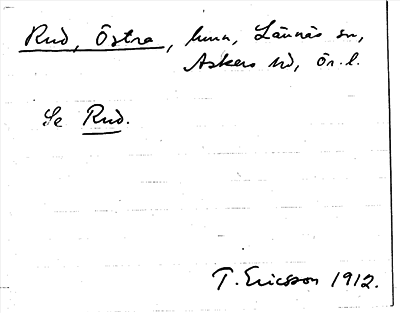 Rud, Östra, hmn, Lännäs sn,
Askers hd, Ör. l.
Se Rud.
T. Ericsson 1912.